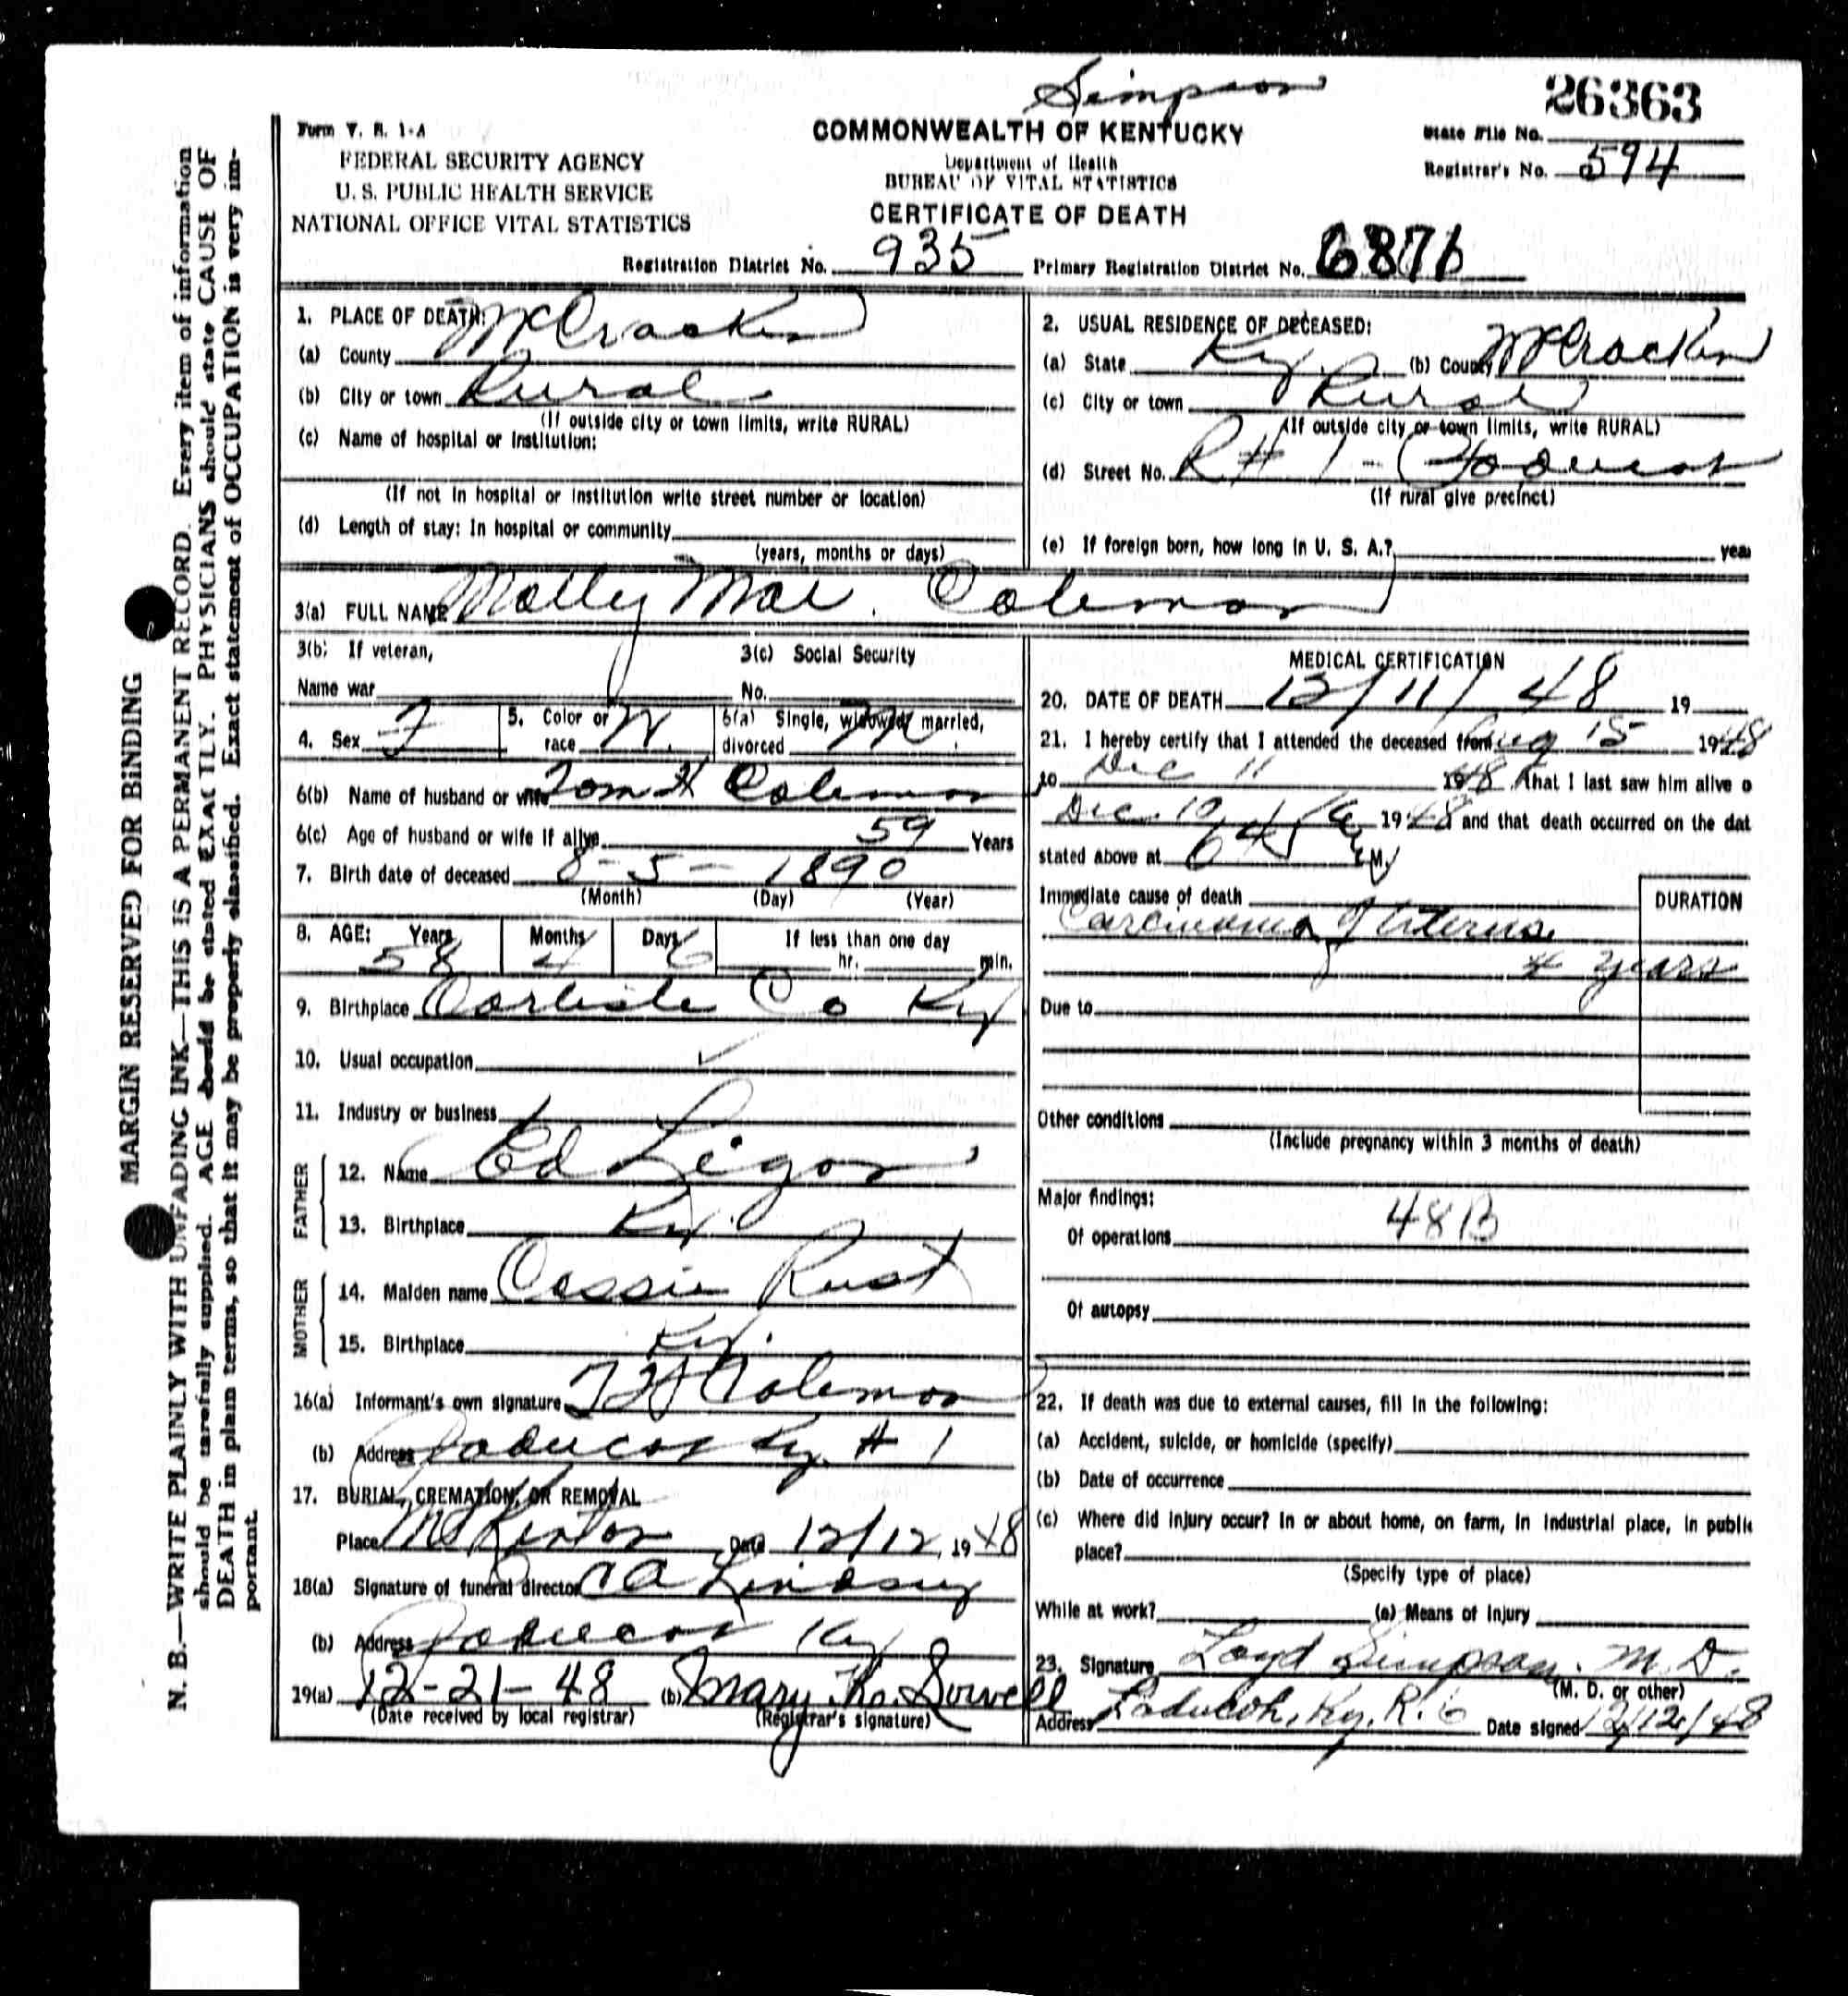 Simpson
26363
Form V. S. 1-A
COMMONWEALTH OF KENTUCKY
State File No.
FEDERAL SECURITY AGENCY
Department of Health
Registrar's No. 594
U. S. PUBLIC HEALTH SERVICE
BUREAU OF VITAL STATISTICS
NATIONAL OFFICE VITAL STATISTICS
CERTIFICATE OF DEATH
Registration District No. 935 Primary Registration District No. 6876
MARGIN RESERVED FOR BINDING
N. B.—WRITE PLAINLY WITH UNFADING INK—THIS IS A PERMANENT RECORD. Every item of information
should be carefully supplied. AGE should be stated EXACTLY. PHYSICIANS should state CAUSE OF
DEATH in plain terms, so that it may be properly classified. Exact statement of OCCUPATION is very im-
portant.
1. PLACE OF DEATH:
(a) County McCracken
(b) City or town Rural
(If outside city or town limits, write RURAL)
(c) Name of hospital or institution:
(If not in hospital or institution write street number or location)
(d) Length of stay: In hospital or community
(years, months or days)
2. USUAL RESIDENCE OF DECEASED:
(a) State Ky. (b) County McCracken
(c) City or town Rural
(If outside city or town limits, write RURAL)
(d) Street No. R # 1 -
(If rural give precinct)
(e) If foreign born, how long in U. S. A.? yea
3(a) FULL NAME Molly Mae Coleman
3(b) If veteran,
3(c) Social Security
Name war No.
4. Sex F 5. Color or race W. 6(a) Single, widowed, married, divorced M.
6(b) Name of husband or wife Tom H Coleman
6(c) Age of husband or wife if alive 59 Years
7. Birth date of deceased 8 - 5 - 1890
(Month) (Day) (Year)
8. AGE: Years Months Days If less than one day
58 4 6 hr. min.
9. Birthplace Carlisle Co Ky
10. Usual occupation
11. Industry or business
FATHER
12. Name Ed Ligon
13. Birthplace Ky.
MOTHER
14. Maiden name Cassie Rust
15. Birthplace Ky.
16(a) Informant's own signature T H Coleman
(b) Address Paducah Ky # 1
17. BURIAL, CREMATION, OR REMOVAL
Place Mt Kenton Date 12/12, 1948
18(a) Signature of funeral director C A Lindsey
(b) Address Paducah Ky
19(a) 12-21-48 (b) Mary Sowell
(Date received by local registrar) (Registrar's signature)
MEDICAL CERTIFICATION
20. DATE OF DEATH 12/11/48 19
21. I hereby certify that I attended the deceased from Aug 15 1948
to Dec 11 1948. that I last saw him alive o
Dec. 10 1948 and that death occurred on the dat
stated above at 645 A M.
Immediate cause of death DURATION
Carcinoma of Uterus
4 years
Due to
Other conditions
(Include pregnancy within 3 months of death)
Major findings:
48B
Of operations
Of autopsy
22. If death was due to external causes, fill in the following:
(a) Accident, suicide, or homicide (specify)
(b) Date of occurrence
(c) Where did injury occur? In or about home, on farm, in industrial place, in public
place?
(Specify type of place)
While at work? (e) Means of Injury
23. Signature Loyd Simpson. M.D.
(M. D. or other)
Address Paducah, Ky. R. 6 Date signed 12/12/48